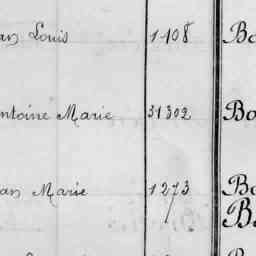 Louis 1408 Bo
Antoine Marie 31302 Bo
Marie 1273 Bo
B